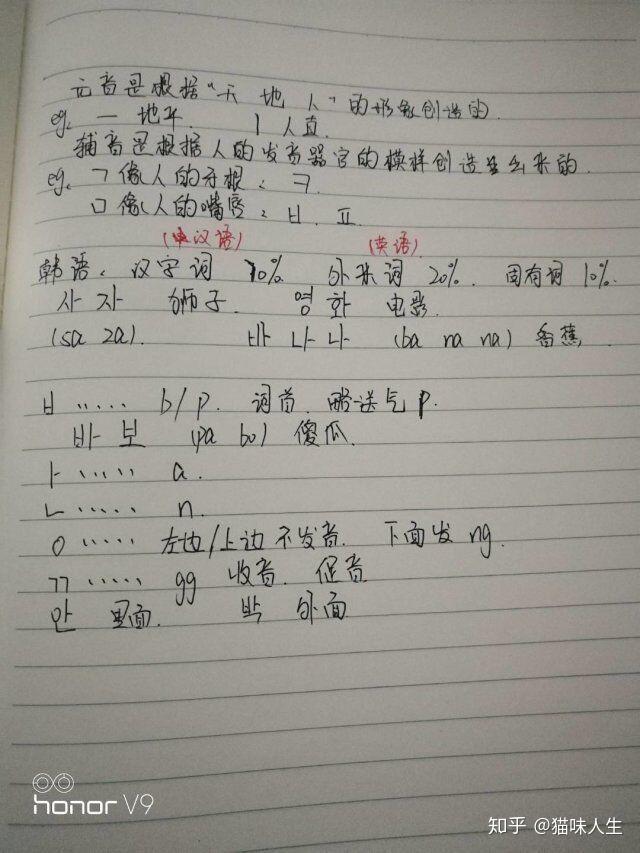 元音是根据“天 地 人”的形象创造的.
eg. 一 地平 丨 人直
辅音是根据人的发音器官的模样创造出来的.
eg. ㄱ像人的牙根: ㅋ.
ㅁ像人的嘴唇: ㅂ. ㅍ.
(汉语) (英语)
韩语: 汉字词 70% 外来词 20%. 固有词 10%.
사 자 狮子. 영 화 电影.
(sa za). 바 나 나 (ba na na) 香蕉
ㅂ ..... b/p. 词首. 略送气p.
바 보 (pa bo) 傻瓜.
ㅏ ..... a.
ㄴ ..... n.
ㅇ ..... 左边/上边不发音. 下面发 ng.
ㄲ ..... gg 收音. 促音
안 里面. 밖 外面
honor V9
知乎 @猫味人生